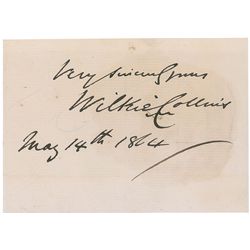 Very sincerely yours
Wilkie Collins
May 14th 1864